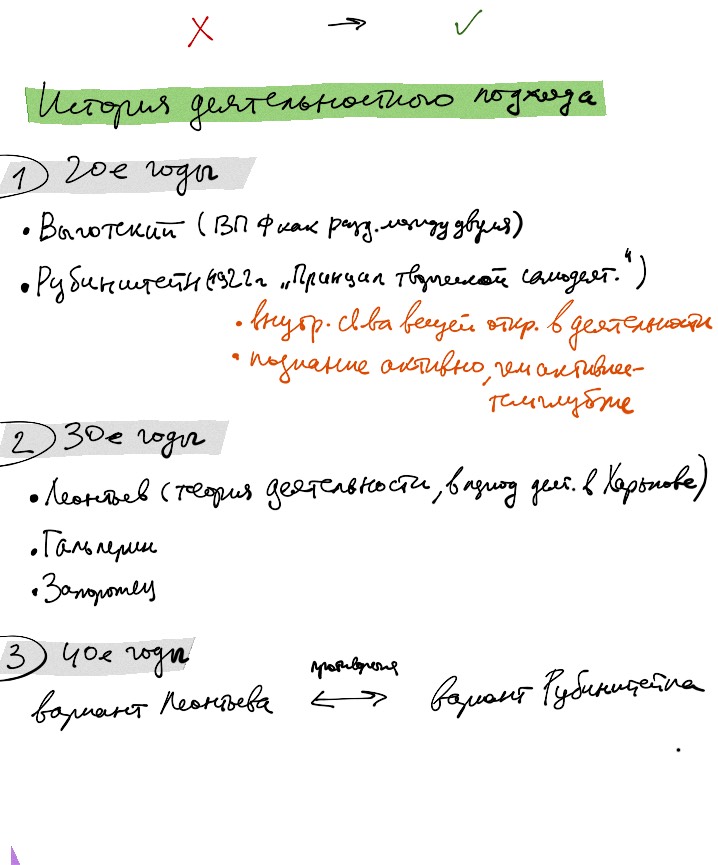 X → ✓
История деятельностного подхода
1 20е годы
• Выготский (ВПФ как разд. между двумя)
• Рубинштейн (1922г „Принцип творческой самодеят.")
• внутр. св-ва вещей откр. в деятельности
• познание активно, чем активнее-
тем глубже
2 30е годы
• Леонтьев (теория деятельности, в период деят. в Харькове)
• Гальперин
• Запорожец
3 40е годы
вариант Леонтьева ⟷ вариант Рубинштейна